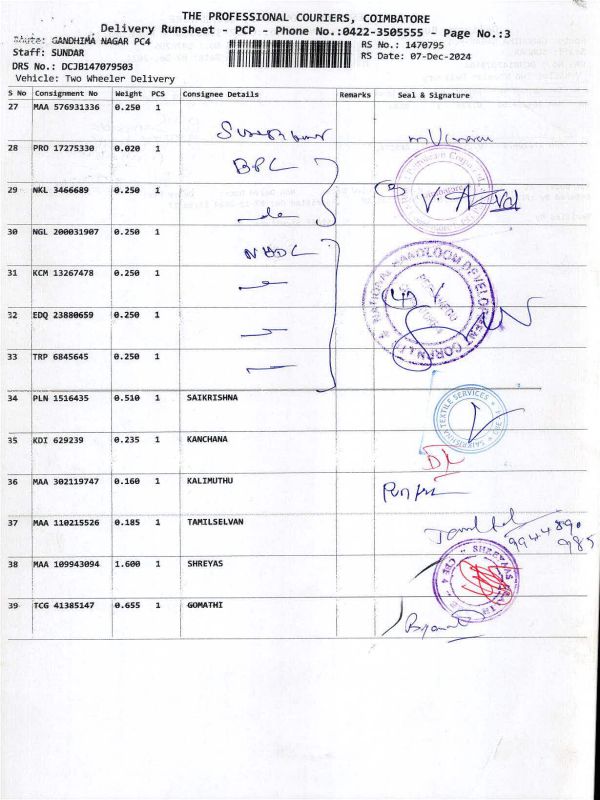 THE PROFESSIONAL COURIERS, COIMBATORE
Delivery Runsheet - PCP - Phone No.:0422-3505555 - Page No.:3
Route: GANDHIMA NAGAR PC4
RS No.: 1470795
Staff: SUNDAR
RS Date: 07-Dec-2024
DRS No.: DCJB147079503
Vehicle: Two Wheeler Delivery
S No Consignment No Weight PCS Consignee Details Remarks Seal & Signature
27 MAA 576931336 0.250 1
28 PRO 17275330 0.020 1 BPL
29 NKL 3466689 0.250 1
V. A
30 NGL 200031907 0.250 1 NHDC
NATIONAL HANDLOOM DEVELOPMENT CORPN LT
31 KCM 13267478 0.250 1
(4)
32 EDQ 23880659 0.250 1
33 TRP 6845645 0.250 1
34 PLN 1516435 0.510 1 SAIKRISHNA
SAIKRISHNA TEXTILE SERVICES
35 KDI 629239 0.235 1 KANCHANA
DL
36 MAA 302119747 0.160 1 KALIMUTHU
37 MAA 110215526 0.185 1 TAMILSELVAN
9944890
985
38 MAA 109943094 1.600 1 SHREYAS
39 TCG 41385147 0.655 1 GOMATHI